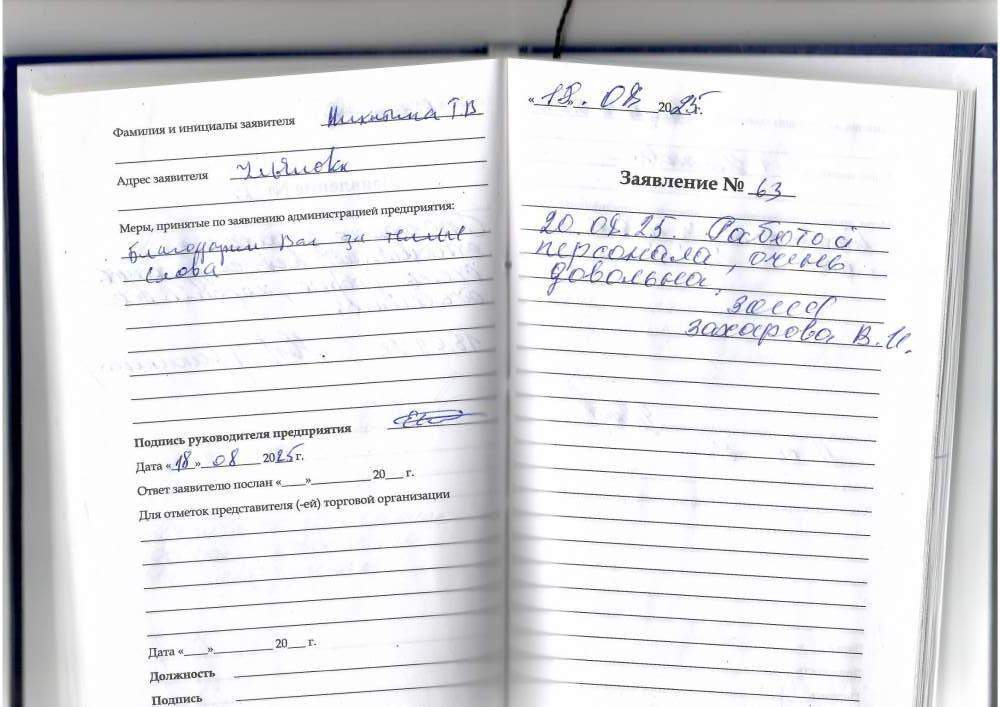 Фамилия и инициалы заявителя Никитина Т В
Адрес заявителя
Меры, принятые по заявлению администрацией предприятия:
благодарим Вас за теплые
слова
Подпись руководителя предприятия
Дата «18» 08 2025 г.
Ответ заявителю послан «___»_________ 20___ г.
Для отметок представителя (-ей) торговой организации
Дата «___»_________ 20___ г.
Должность
Подпись
«18. 08 2025г.
Заявление № 63
20.08.25. Работой
персонала, очень
довольна.
Захарова В.И.